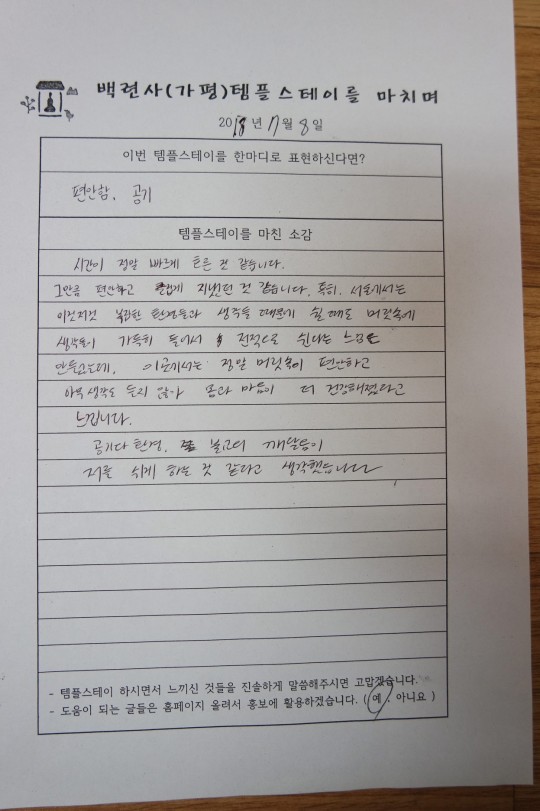 백련사(가평)템플스테이를 마치며
2018년 7월 8일
이번 템플스테이를 한마디로 표현하신다면?
편안함, 공기
템플스테이를 마친 소감
시간이 정말 빠르게 흐른 것 같습니다.
그만큼 편안하고 즐겁게 지냈던 것 같습니다. 특히, 서울에서는
이것저것 복잡한 환경들과 생각들 때문에 쉴 때도 머릿속에
생각들이 가득히 들어서 전적으로 쉰다는 느낌은
못 느꼈는데, 이곳에서는 정말 머릿속이 편안하고
아무 생각도 들지 않아 몸과 마음이 더 건강해졌다고
느낍니다.
공기와 환경, 불교의 깨달음이
저를 쉬게 하는 것 같다고 생각했습니다
- 템플스테이 하시면서 느끼신 것들을 진솔하게 말씀해주시면 고맙겠습니다.
- 도움이 되는 글들은 홈페이지 올려서 홍보에 활용하겠습니다. ( 예 , 아니요 )